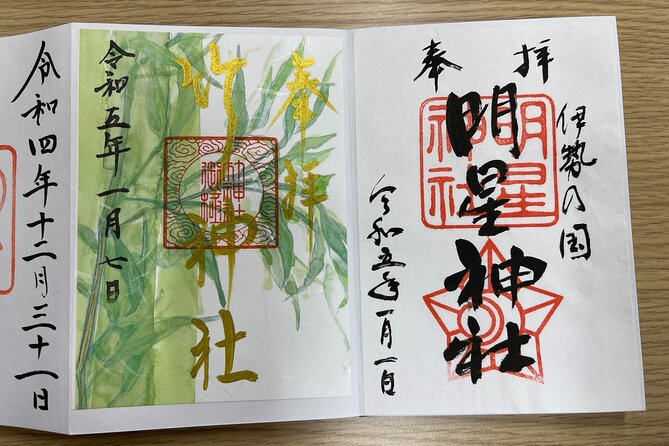 奉拝
伊勢の国
明星神社
明星
神社
令和五年一月一日
奉拝
竹神社
令和五年一月七日
令和四年十二月三十一日